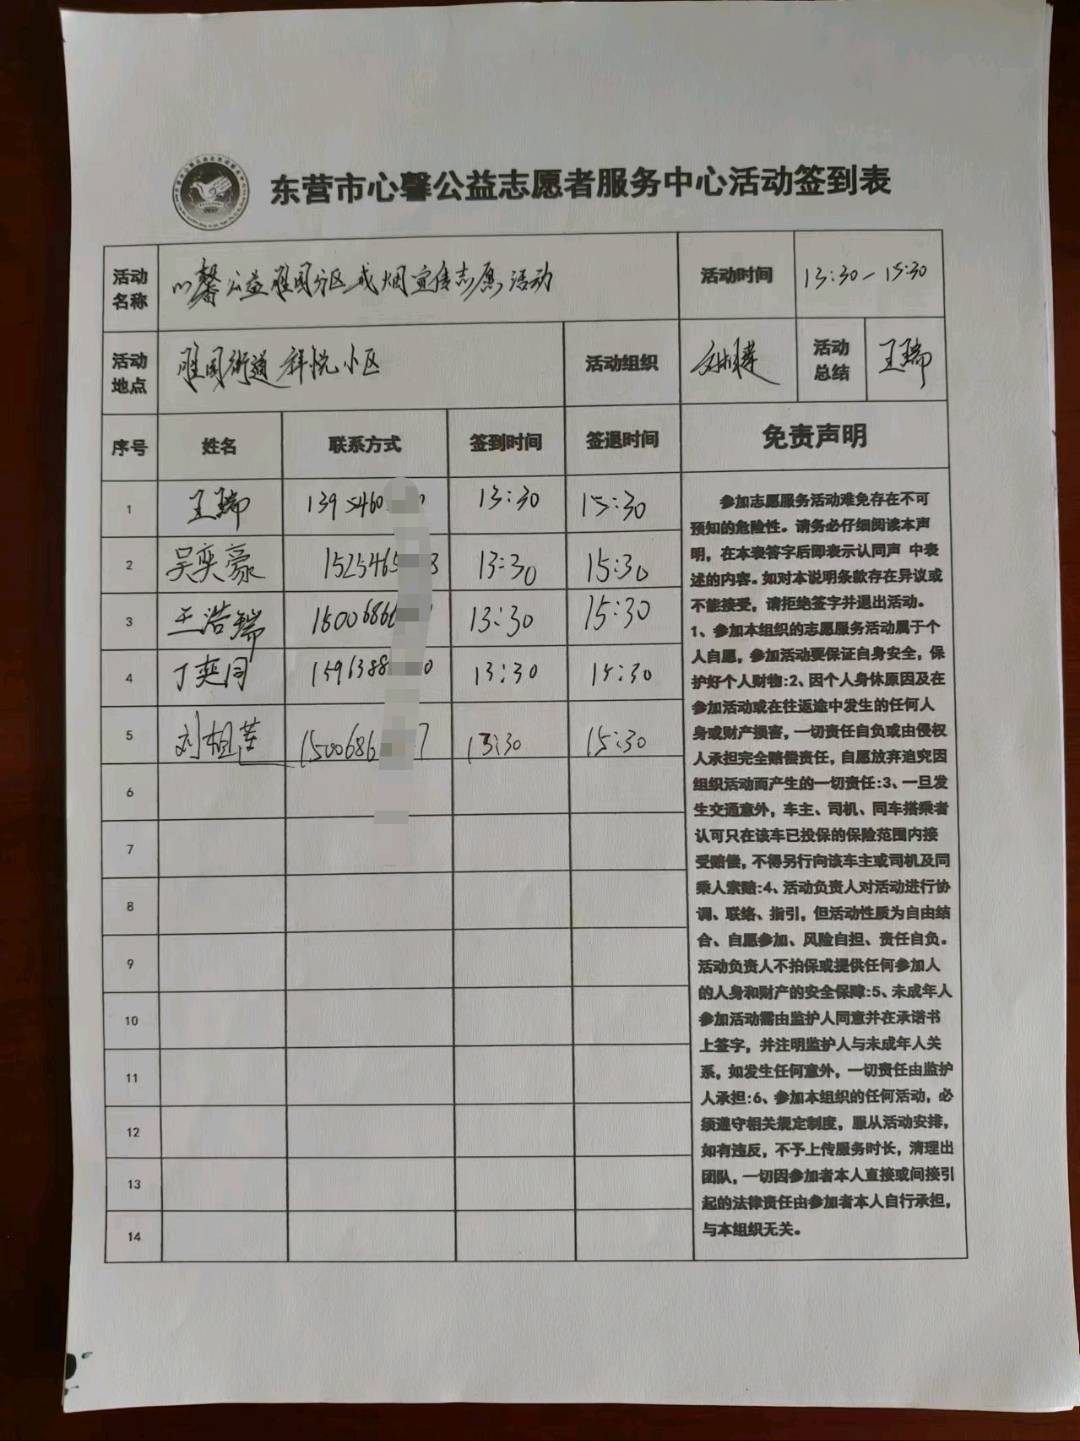 东营市心馨公益志愿者服务中心活动签到表
活动名称 心馨公益雁园分区戒烟宣传志愿活动 活动时间 13:30-15:30
活动地点 雁园街道祥悦小区 活动组织 活动总结 王瑞
序号 姓名 联系方式 签到时间 签退时间 免责声明
1 王瑞 1395460 0 13:30 15:30
2 吴奕豪 1525465 3 13:30 15:30
3 王浩瑞 15006866 13:30 15:30
4 丁奕同 1596388 0 13:30 15:30
5 1500686 7 13:30 15:30
6
7
8
9
10
11
12
13
14
参加志愿服务活动难免存在不可
预知的危险性。请务必仔细阅读本声
明，在本表答字后即表示认同声 中表
述的内容。如对本说明条款存在异议或
不能接受，请拒绝签字并退出活动。
1、参加本组织的志愿服务活动属于个
人自愿，参加活动要保证自身安全，保
护好个人财物:2、因个人身休原因及在
参加活动或在往返途中发生的任何人
身或财产损害，一切责任自负或由侵权
人承担完全赔偿责任，自愿放弃追究因
组织活动而产生的一切责任:3、一旦发
生交通意外，车主、司机、同车搭乘者
认可只在该车已投保的保险范围内接
受赔偿，不得另行向该车主或司机及同
乘人索赔:4、活动负责人对活动进行协
调、联络、指引，但活动性质为自由结
合、自愿参加、风险自担、责任自负。
活动负责人不拍保或提供任何参加人
的人身和财产的安全保障:5、未成年人
参加活动需由监护人同意并在承诺书
上签字，并注明监护人与未成年人关
系，如发生任何意外，一切责任由监护
人承担:6、参加本组织的任何活动，必
须遵守相关规定制度，服从活动安排，
如有违反，不予上传服务时长，清理出
团队，一切因参加者本人直接或间接引
起的法律责任由参加者本人自行承担，
与本组织无关。